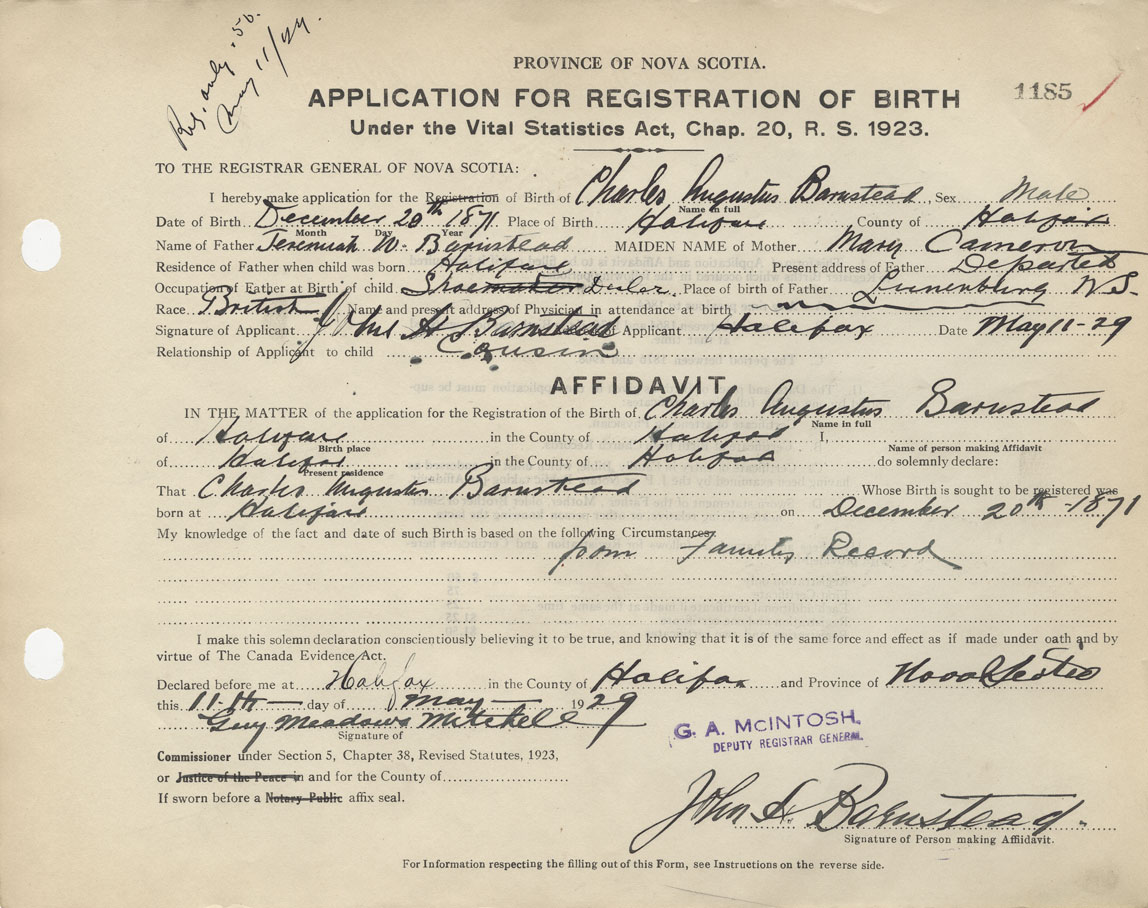 Reg. only .50.
May 11/29.
PROVINCE OF NOVA SCOTIA.
1185
APPLICATION FOR REGISTRATION OF BIRTH
Under the Vital Statistics Act, Chap. 20, R. S. 1923.
TO THE REGISTRAR GENERAL OF NOVA SCOTIA:
I hereby make application for the Registration of Birth of Charles Augustus Barnstead Sex Male
Name in full
Date of Birth December 20th 1871 Place of Birth Halifax County of Halifax
Month Day Year
Name of Father Jeremiah W. Barnstead MAIDEN NAME of Mother Mary Cameron
Residence of Father when child was born Halifax Present address of Father Departed
Occupation of Father at Birth of child Shoemaker Dealer. Place of birth of Father Lunenburg N.S.
Race British Name and present address of Physician in attendance at birth
Signature of Applicant John H Barnstead of Applicant Halifax Date May 11-29
Relationship of Applicant to child Cousin
AFFIDAVIT
IN THE MATTER of the application for the Registration of the Birth of Charles Augustus Barnstead
Name in full
of Halifax in the County of Halifax I,
Birth place Name of person making Affidavit
of Halifax in the County of Halifax do solemnly declare:
Present residence
That Charles Augustus Barnstead Whose Birth is sought to be registered was
born at Halifax on December 20th 1871
My knowledge of the fact and date of such Birth is based on the following Circumstances
from Family Record
I make this solemn declaration conscientiously believing it to be true, and knowing that it is of the same force and effect as if made under oath and by
virtue of The Canada Evidence Act.
Declared before me at Halifax in the County of Halifax and Province of Nova Scotia
this 11th day of May 1929
Guy Meadows Mitchell
Signature of
G. A. McINTOSH,
DEPUTY REGISTRAR GENERAL.
Commissioner under Section 5, Chapter 38, Revised Statutes, 1923,
or Justice of the Peace in and for the County of
If sworn before a Notary Public affix seal.
John H. Barnstead.
Signature of Person making Affidavit.
For Information respecting the filling out of this Form, see Instructions on the reverse side.